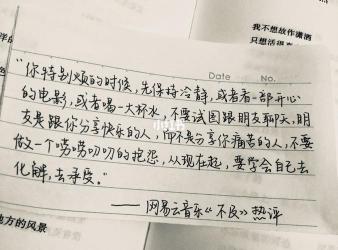 我不想故作潇洒
只想活得
Date No.
“你特别烦的时候，先保持冷静，或者看一部开心
的电影，或者喝一大杯水，不要试图跟朋友聊天，朋
友是跟你分享快乐的人，而不是分享你痛苦的人，不要
做一个唠唠叨叨的抱怨，从现在起，要学会自己去
化解，去承受。”
——网易云音乐《不及》热评
地方的风景